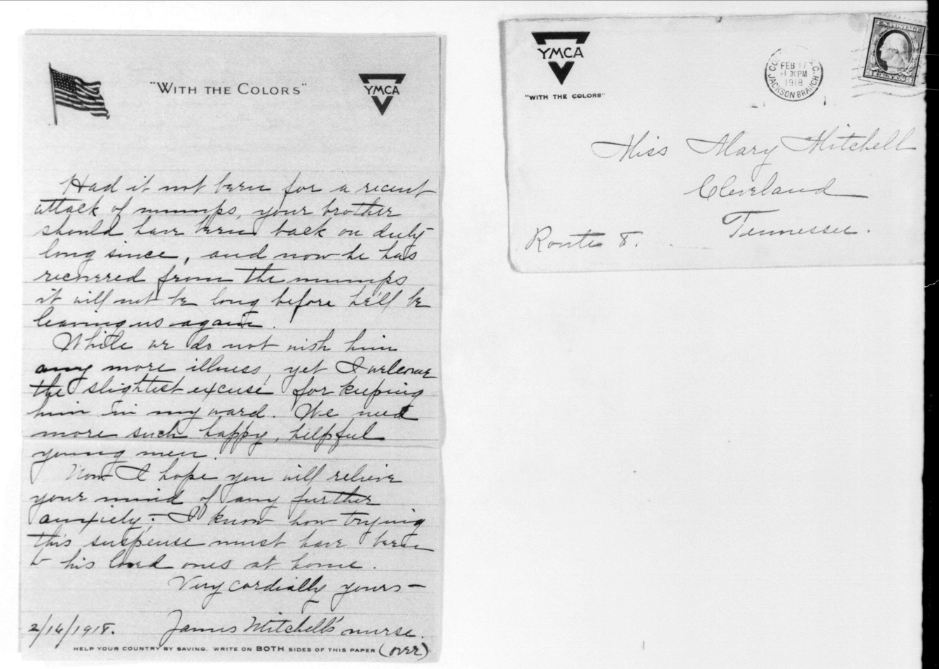 "WITH THE COLORS"
YMCA
Had it not been for a recent
attack of mumps, your brother
should have been back on duty
long since, and now he has
recovered from the mumps
it will not be long before he'll be
leaving us again.
While we do not wish him
any more illness, yet I welcome
the slightest excuse for keeping
him in my ward. We need
more such happy, helpful
young men.
Now I hope you will relieve
your mind of any further
anxiety;- I know how trying
this suspense must have been
to his loved ones at home.
Very cordially yours-
2/16/1918. James Mitchell's nurse.
HELP YOUR COUNTRY BY SAVING. WRITE ON BOTH SIDES OF THIS PAPER (over)
YMCA
"WITH THE COLORS"
FEB 17
PM
1918
JACKSON BRANCH
Miss Mary Mitchell
Cleveland
Tennessee.
Route 8.